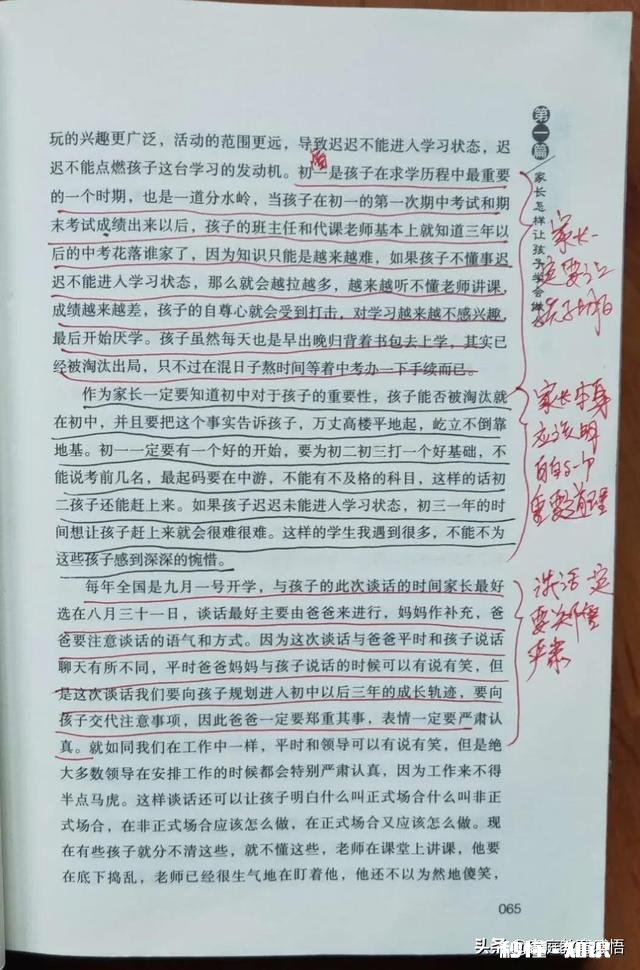 玩的兴趣更广泛，活动的范围更远，导致迟迟不能进入学习状态，迟
迟不能点燃孩子这台学习的发动机。初一是孩子在求学历程中最重要
的一个时期，也是一道分水岭，当孩子在初一的第一次期中考试和期
末考试成绩出来以后，孩子的班主任和代课老师基本上就知道三年以
后的中考花落谁家了，因为知识只能是越来越难，如果孩子不懂事迟
迟不能进入学习状态，那么就会越拉越多，越来越听不懂老师讲课，
成绩越来越差，孩子的自尊心就会受到打击，对学习越来越不感兴趣，
最后开始厌学。孩子虽然每天也是早出晚归背着书包去上学，其实已
经被淘汰出局，只不过在混日子熬时间等着中考办一下手续而已。
作为家长一定要知道初中对于孩子的重要性，孩子能否被淘汰就
在初中，并且要把这个事实告诉孩子，万丈高楼平地起，屹立不倒靠
地基。初一一定要有一个好的开始，要为初二初三打一个好基础，不
能说考前几名，最起码要在中游，不能有不及格的科目，这样的话初
二孩子还能赶上来。如果孩子迟迟未能进入学习状态，初三一年的时
间想让孩子赶上来就会很难很难。这样的学生我遇到很多，不能不为
这些孩子感到深深的惋惜。
每年全国是九月一号开学，与孩子的此次谈话的时间家长最好
选在八月三十一日，谈话最好主要由爸爸来进行，妈妈作补充，爸
爸要注意谈话的语气和方式。因为这次谈话与爸爸平时和孩子说话
聊天有所不同，平时爸爸妈妈与孩子说话的时候可以有说有笑，但
是这次谈话我们要向孩子规划进入初中以后三年的成长轨迹，要向
孩子交代注意事项，因此爸爸一定要郑重其事，表情一定要严肃认
真。就如同我们在工作中一样，平时和领导可以有说有笑，但是绝
大多数领导在安排工作的时候都会特别严肃认真，因为工作来不得
半点马虎。这样谈话还可以让孩子明白什么叫正式场合什么叫非正
式场合，在非正式场合应该怎么做，在正式场合又应该怎么做。现
在有些孩子就分不清这些，就不懂这些，老师在课堂上讲课，他要
在底下捣乱，老师已经很生气地在盯着他，他还不以为然地傻笑，
065
第一篇
家长怎样让孩子学会做
家长一
定要让
孩子明白
家长本身
应该明
白这个
重要道理
谈话一定
要郑重
严肃
头条